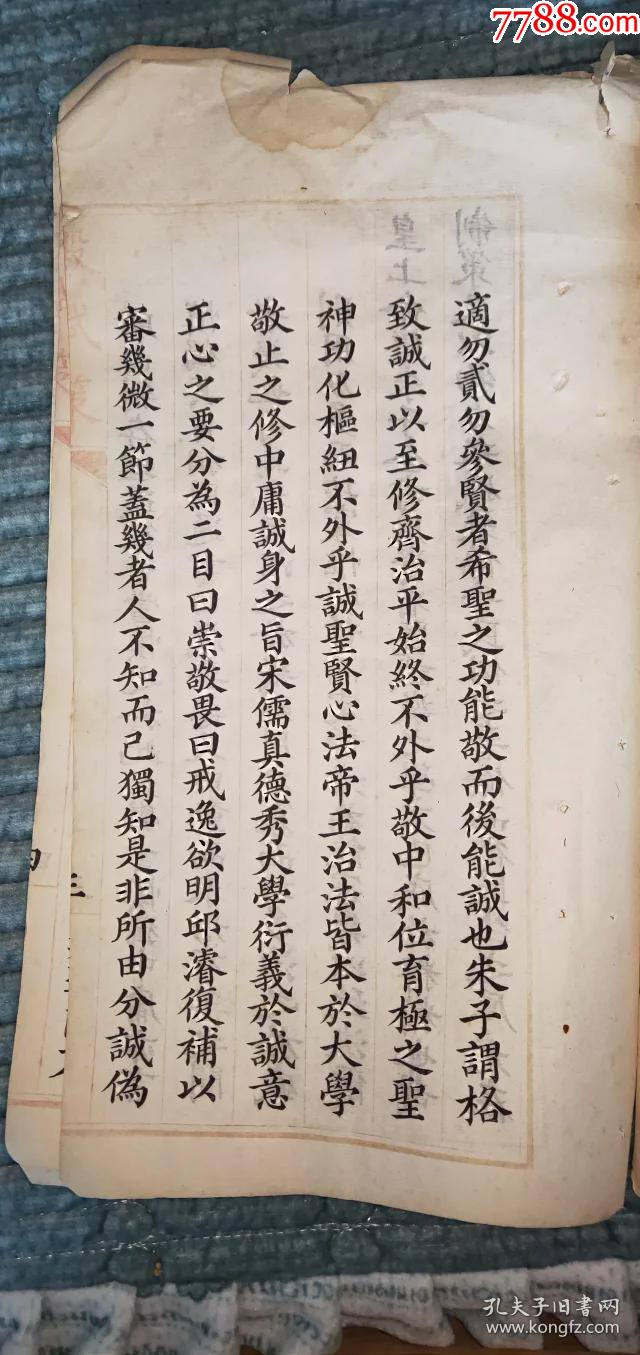 7788.com
適勿貳勿參賢者希聖之功能敬而後能誠也朱子謂格
致誠正以至修齊治平始終不外乎敬中和位育極之聖
神功化樞紐不外乎誠聖賢心法帝王治法皆本於大學
敬止之修中庸誠身之旨宋儒真德秀大學衍義於誠意
正心之要分為二目曰崇敬畏曰戒逸欲明邱濬復補以
審幾微一節蓋幾者人不知而己獨知是非所由分誠偽
制策
皇上
三
孔夫子旧书网
www.kongfz.com